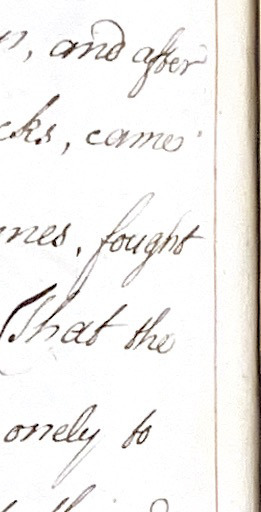 , and after
cks, came
nes, fought
That the
onely to